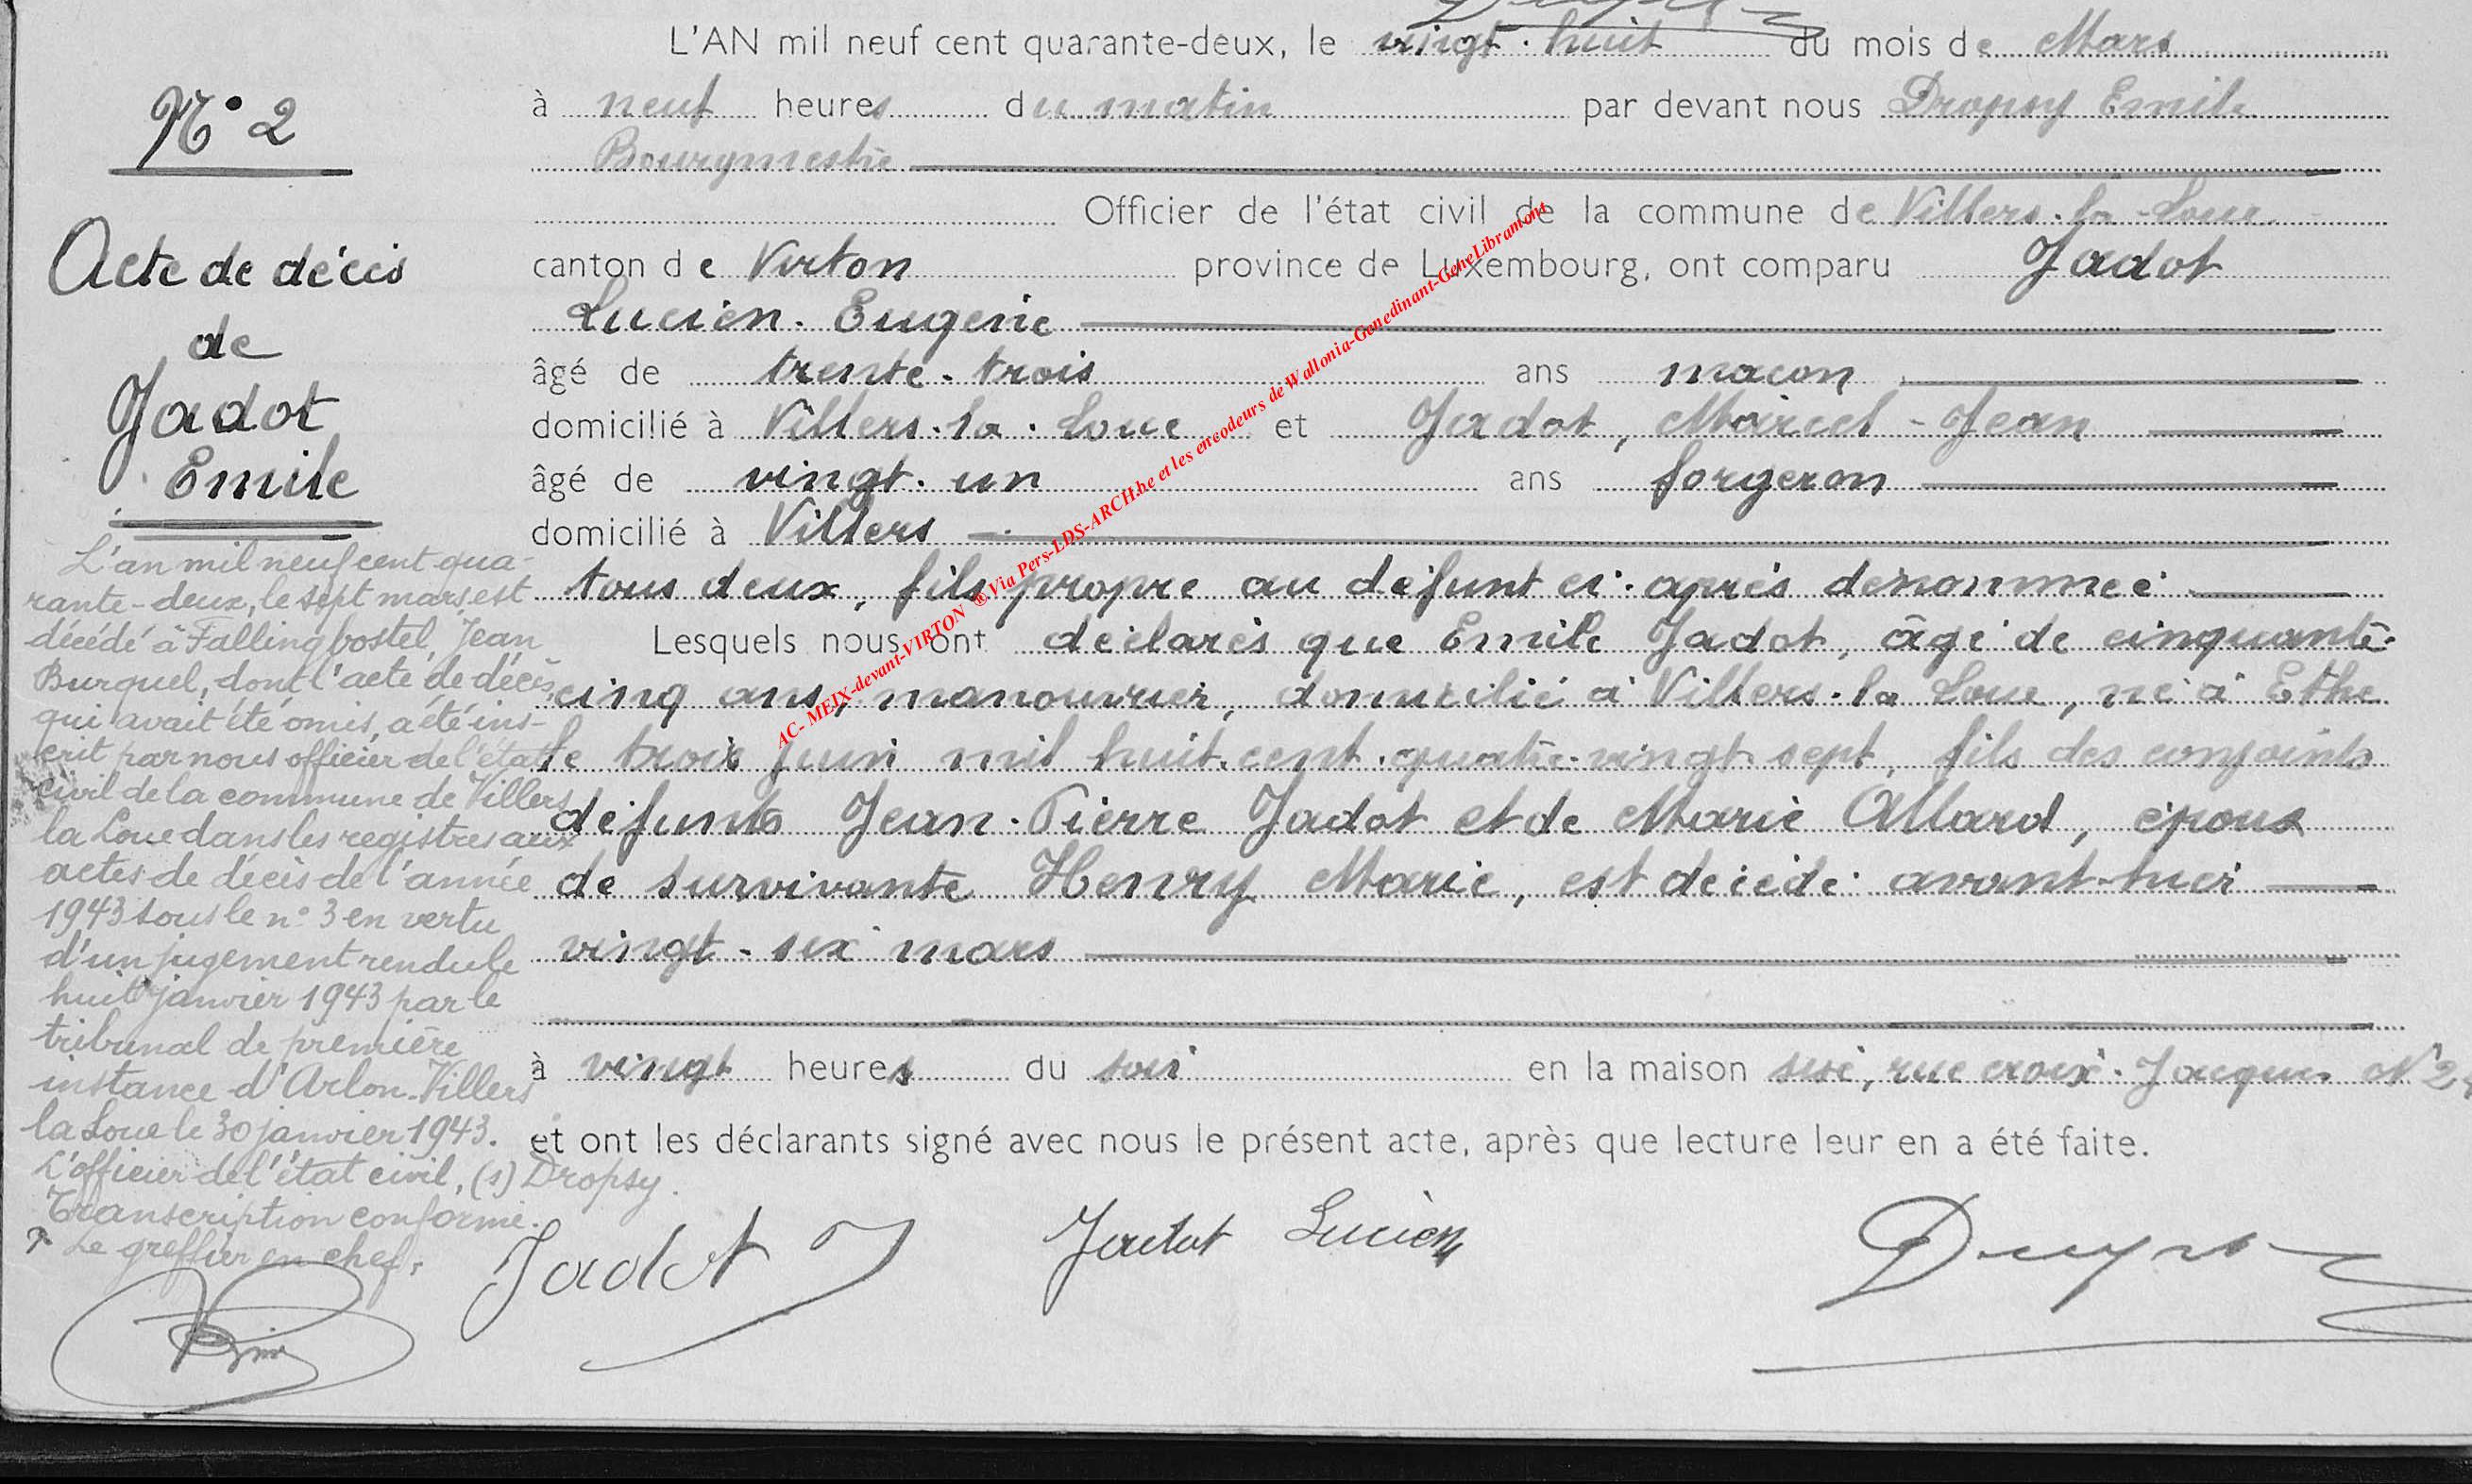 L'AN mil neuf cent quarante-deux, le vingt-huit du mois de Mars
à neuf heures du matin par devant nous Dropsy Emile
Bourgmestre
Officier de l'état civil de la commune de Villers-la-Loue
canton de Virton province de Luxembourg, ont comparu Jadot
Lucien-Eugène
âgé de trente-trois ans maçon
domicilié à Villers-la-Loue et Jadot, Marcel-Jean
âgé de vingt-un ans forgeron
domicilié à Villers
tous deux, fils propre au défunt ci-après dénommée
Lesquels nous ont déclarés que Emile Jadot, âgé de cinquante-
cinq ans, manouvrier, domicilié à Villers-la Loue, né à Ethe
le trois juin mil huit-cent-quatre-vingt sept, fils des conjoints
défunts Jean-Pierre Jadot et de Marie Allard, époux
de survivante Henry Marie, est décédé avant-hier
vingt-six mars
à vingt heures du soir en la maison sise, rue croix-Jacques N°2
et ont les déclarants signé avec nous le présent acte, après que lecture leur en a été faite.
Jadot Jadot Lucien
N° 2
Acte de décès
de
Jadot
Emile
L'an mil neuf cent qua-
rante-deux, le sept mars, est
décédé à Fallingbostel, Jean
Burquel, dont l'acte de décès,
qui avait été omis, a été ins-
crit par nous officier de l'état
civil de la commune de Villers
la Loue dans les registres aux
actes de décès de l'année
1943 sous le n° 3 en vertu
d'un jugement rendu le
huit janvier 1943 par le
tribunal de première
instance d'Arlon. Villers
la Loue le 30 janvier 1943.
L'officier de l'état civil, (s) Dropsy.
Transcription conforme.
Le greffier en chef,
AC- MEIX-devant-VIRTON ®Via Pers-LDS-ARCH.be et les encodeurs de Wallonia-Genedinant-GeneLibramont